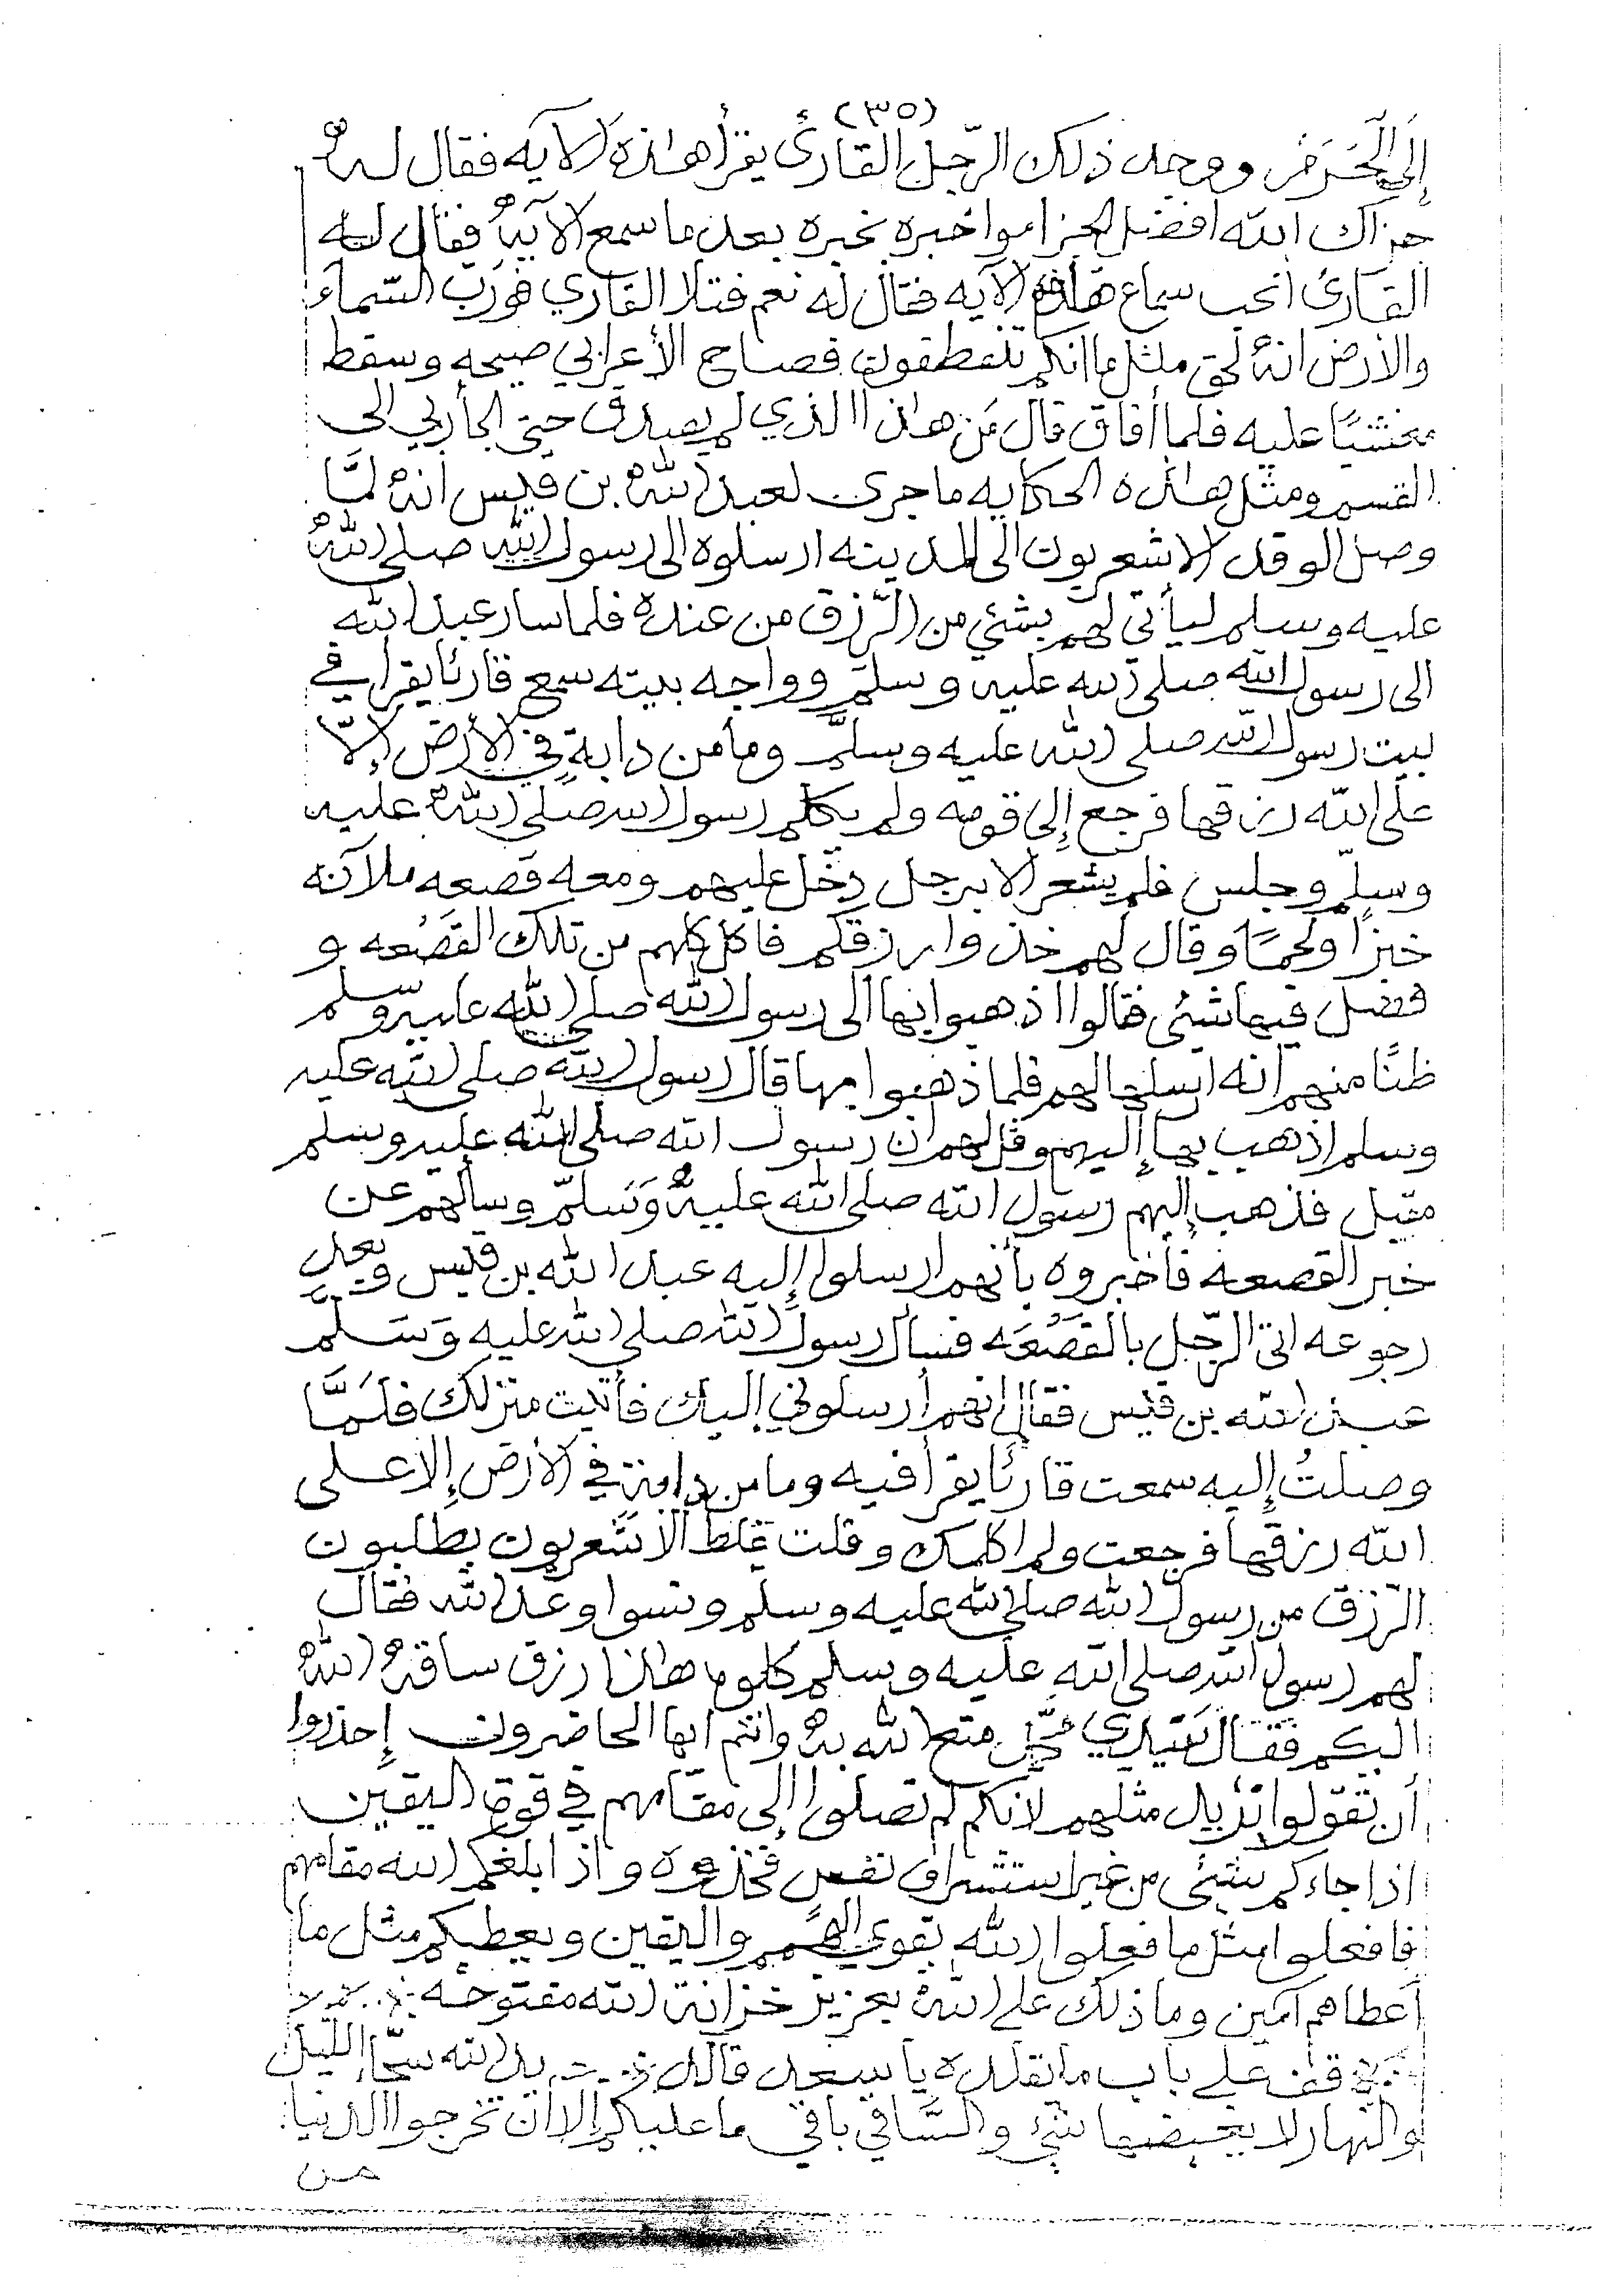 (٣٥)
إلَى الْحَرَمْ ووجد ذلك الرّجل القارئ يقرأ هٰذه الآيه فقال له
جزاك الله افضل الجزا واخبره بخبره بعد ما سمع الآيه فقال له
القارئ اتحب سماع هٰذه الآيه فقال له نعم فتلا القاري فورَبّ السّماءَ
والأرض انهُ لحق مثل ما انكم تنطقون فصاح الأعرابي صيحه وسقط
مغشيًا عليه فلما أفاق قال مَن هٰذا الذي لم يصدق حتى الجأ ربي الى
القسم ومثل هٰذه الحكايه ما جرى لعبد اللهْ بن قيس انهُ لمَّا
وصل الوفد الاشعريون الى المدينه ارسلوه الى رسول الله صلى اللهُ
عليه وسلم ليأتى لهم بشئ من الرّزق من عنده فلما سار عبد الله
الى رسول الله صلى الله عليه وسلم وواجه بيته سمع قارئًا يقرا في
بيت رسول الله صلى الله عليه وسلَّم وما من دابةٍ في الأرض إلاّ
على الله رزقها فرجع إلى قومه ولم يكلم رسول الله صلى اللهُ عليه
وسلم وجلس فلم يشعر الا برجل دخل عليهم ومعه قصعه ملآنه
خبزًا ولحمًا وقال لهم خذوا رزقكم فاكل كلهم من تلك القَصْعه و
فضل فيها شئى فقالوا اذهبوا بها الى رسول الله صلى الله عليه وسلم
ظنًا منهم انه ارسلها لهم فلما ذهبوا بها قال رسول الله صلى الله عليه
وسلم اذهب بها إليهم وقل لهم ان رسول الله صلى الله عليه وسلم
مقبل فذهب إليهم رسول الله صلى الله عليهْ وَسَلمّ وسألهم عن
خبر القصعه فأخبروه بأنهم ارسلوا إليه عبد الله بن قيس وبعد
رجوعه اتى الرّجل بالقَصْعَه فسأل رسول الله صلى الله عليه وَسَلم
عبد الله بن قيس فقال انهم أرسلوني إليك فأتيت منزلك فلَمَّا
وصلتُ إليه سمعت قارئًا يقرأ فيه وما من دابة في الأرض إلا على
الله رزقها فرجعت ولم اكلمك وقلت غلط الأشعريون يطلبون
الرّزق من رسول الله صلى الله عليه وسلم ونسوا وعد الله فقال
لهم رسول الله صلى الله عليه وسلم كلوها هٰذا رزق ساقهُ اللهُ
اليكم فقال سَيّدي متع الله بهْ وانتم ايها الحاضرون إحذروا
أن تقولوا مثلهم لأنكم لم تصلوا إلى مقامهم في قوة اليقين
اذا جاءكم شئى من غير استشراف نفس فخذوه واذا بلغكم الله مقامهم
فافعلوا مثل ما فعلوا الله يقوي الهمم واليقين ويعطيكم مثل ما
أعطاهم آمين وما ذلك على اللهْ بعزيز خزانة الله مفتوحه
قف على باب ما تقلده يا سعد قالد يد الله سحّاء الليل
والنهار لا يغيضها شئ والسَّاقي باقي ما عليكم إلا ان تخرجوا الدنيا
من